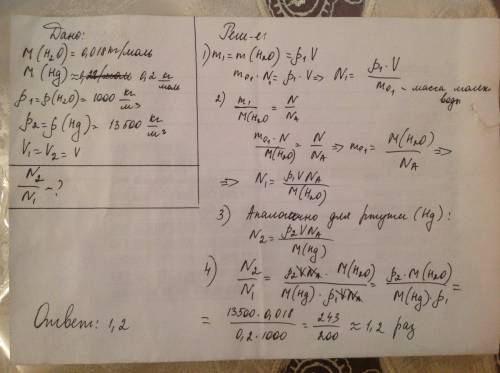 Дано:
M(H₂O) = 0,018 кг/моль
M(Hg) ≈ 0,2 кг/моль
ρ₁ = ρ(H₂O) = 1000 кг/м³
ρ₂ = ρ(Hg) = 13500 кг/м³
V₁ = V₂ = V
N₂/N₁ - ?
Реш-е:
1) m₁ = m(H₂O) = ρ₁V
m₀₁ · N₁ = ρ₁ · V => N₁ = ρ₁ · V / m₀₁ - масса молек. воды
2) m₁/M(H₂O = N/N_A
m₀₁ · N / M(H₂O) = N/N_A => m₀₁ = M(H₂O)/N_A =>
=> N₁ = ρ₁VN_A / M(H₂O)
3) Аналогично для ртути (Hg):
N₂ = ρ₂VN_A / M(Hg)
4) N₂/N₁ = ρ₂VN_A · M(H₂O) / M(Hg) · ρ₁VN_A = ρ₂ · M(H₂O) / M(Hg) · ρ₁ =
= 13500 · 0,018 / 0,2 · 1000 = 243/200 ≈ 1,2 раз
Ответ: 1,2